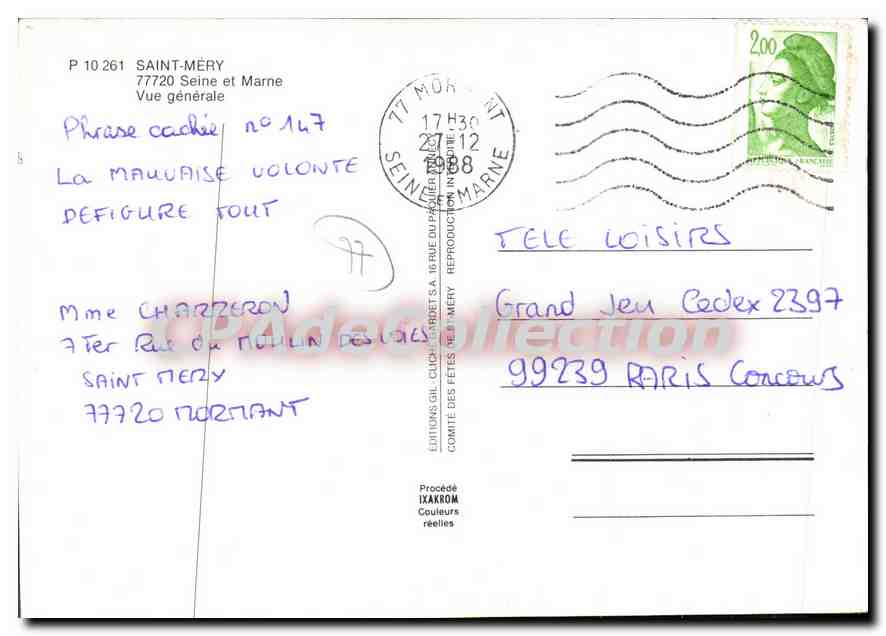 P 10 261 SAINT-MÉRY
77720 Seine et Marne
Vue générale
Phrase cachée n° 147
LA MAUVAISE VOLONTE
DEFIGURE TOUT
77
Mme CHARZERON
7 Ter Rue du MOULIN DES VOIES
SAINT MERY
77720 MORMANT
77 MORMANT
17H30
27-12
1988
SEINE ET MARNE
2,00
RÉPUBLIQUE FRANÇAISE
TELE LOISIRS
Grand Jeu Cedex 2397
99239 PARIS Concours
ÉDITIONS GIL - CLICHÉ GARDET S.A. 16 RUE DU PAQUIER ANNECY
COMITÉ DES FÊTES DE ST-MÉRY REPRODUCTION INTERDITE
Procédé
IXAKROM
Couleurs
réelles
CPAdeCollection